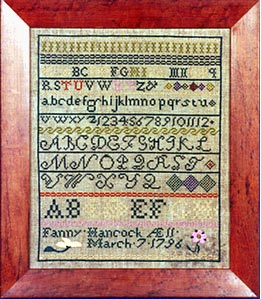 BC FG
RSTUVW
abcdefghijklmnopqrstu
vwxyz 123456789101112
ABCDEFGHIKL
MNOPQRST
AB EF
Fanny Hancock Æ11
March 7 1796